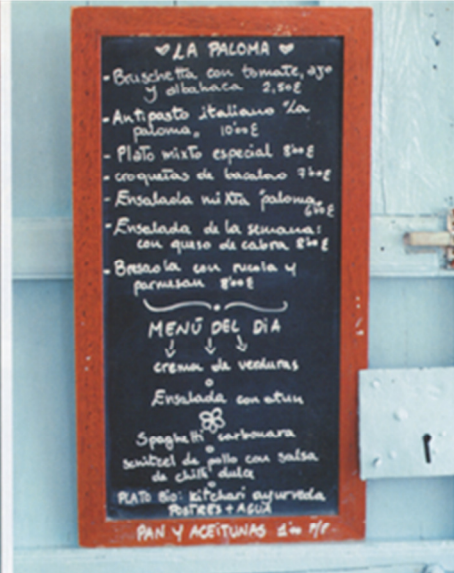 LA PALOMA
- Bruschetta con tomate, ajo
y albahaca 2,50€
- Antipasto italiano "La
paloma" 10'00€
- Plato mixto especial 8'00€
- croquetas de bacalao 7'00€
- Ensalada mixta "paloma"
6'00€
- Ensalada de la semana:
con queso de cabra 8'00€
- Bresaola con rucola y
parmesan 8'00€
MENÚ DEL DIA
crema de verduras
o
Ensalada con atun
Spaghetti carbonara
o
schnitzel de pollo con salsa
de chilli dulce
o
PLATO BIO: kitchari ayurveda
POSTRES + AGUA
PAN Y ACEITUNAS 1'00 P/P